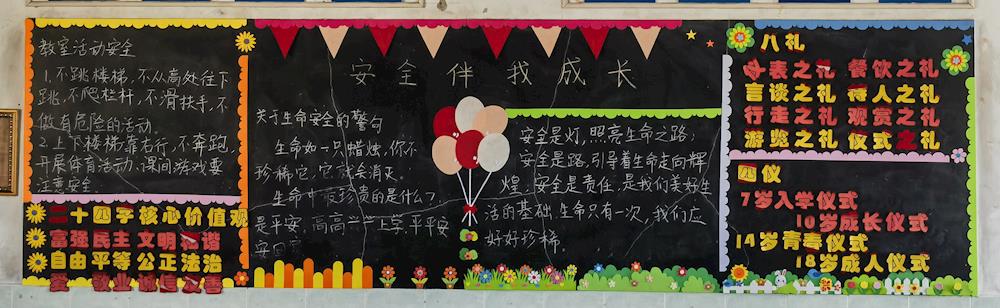 教室活动安全
1、不跳楼梯,不从高处往下
跳,不爬栏杆,不滑扶手,不
做有危险的活动。
2.上下楼梯靠右行,不奔跑,
开展体育活动、课间游戏要
注意安全
二十四字核心价值观
富强民主文明和谐
自由平等公正法治
爱 敬业诚信友善
安全伴我成长
关于生命安全的警句
生命如一只蜡烛,你不
珍稀它,它就会消灭。
生命中最珍贵的是什么?
是平安,高高兴兴上学,平平安
安回
安全是灯,照亮生命之路;
安全是路,引导着生命走向辉
煌;安全是责任,是我们美好生
活的基础,生命只有一次,我们应
好好珍稀。
八礼
仪表之礼 餐饮之礼
言谈之礼 待人之礼
行走之礼 观赏之礼
游览之礼 仪式之礼
四仪
7岁入学仪式
10岁成长仪式
14岁青春仪式
18岁成人仪式